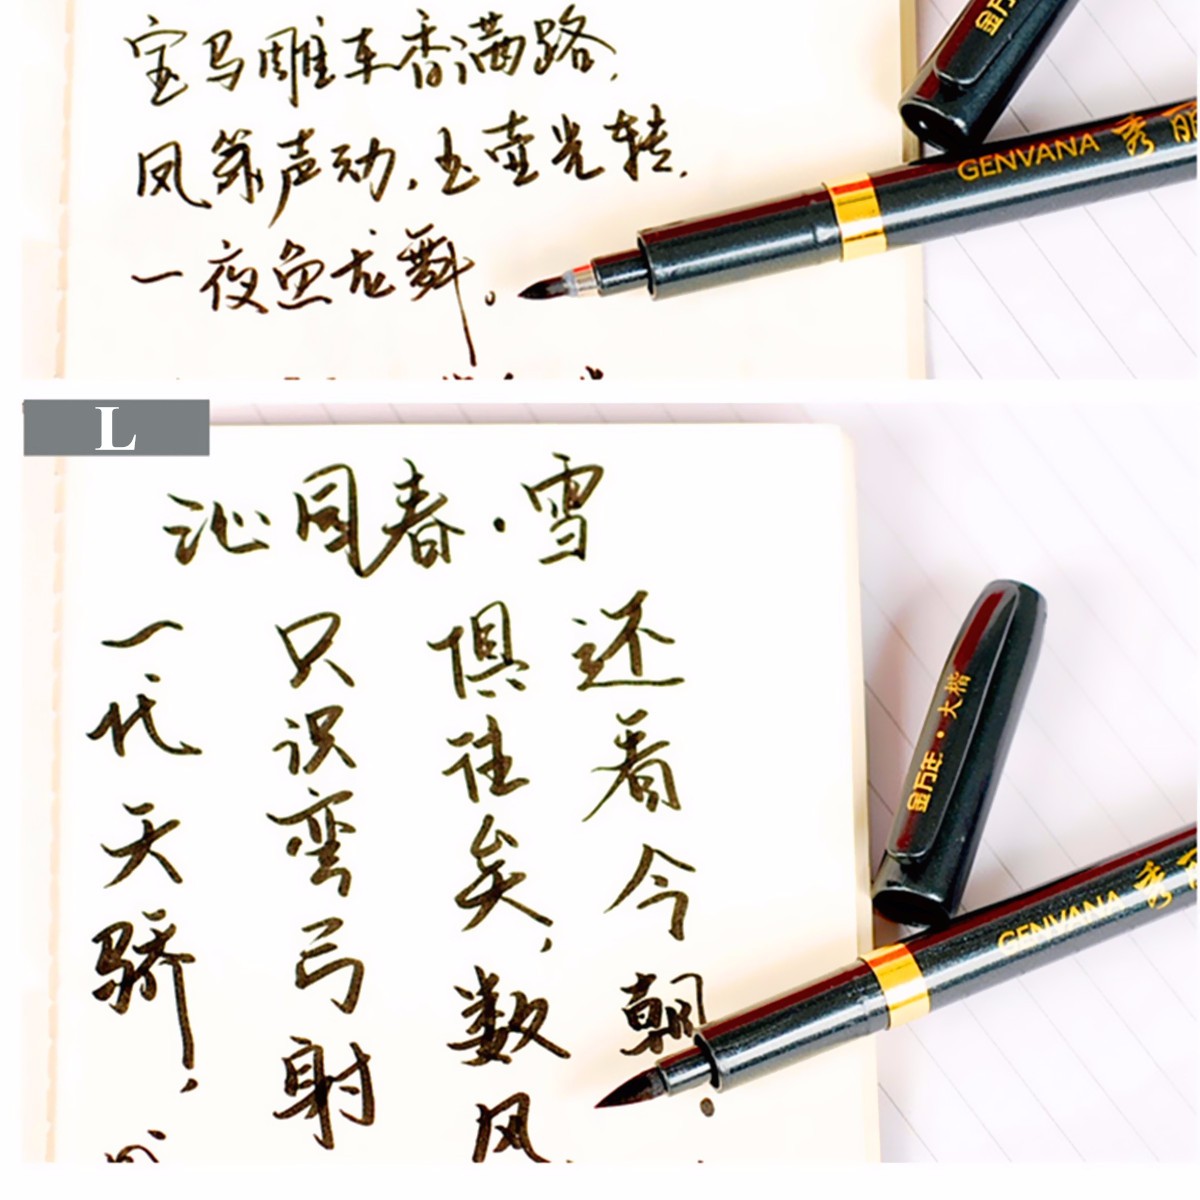 宝马雕车香满路,
凤箫声动,玉壶光转,
一夜鱼龙舞。
金万
GENVANA 秀丽
L
沁园春·雪
一代天骄,
只识弯弓射
俱往矣,数风
还看今朝。
金万年·大楷
GENVANA 秀